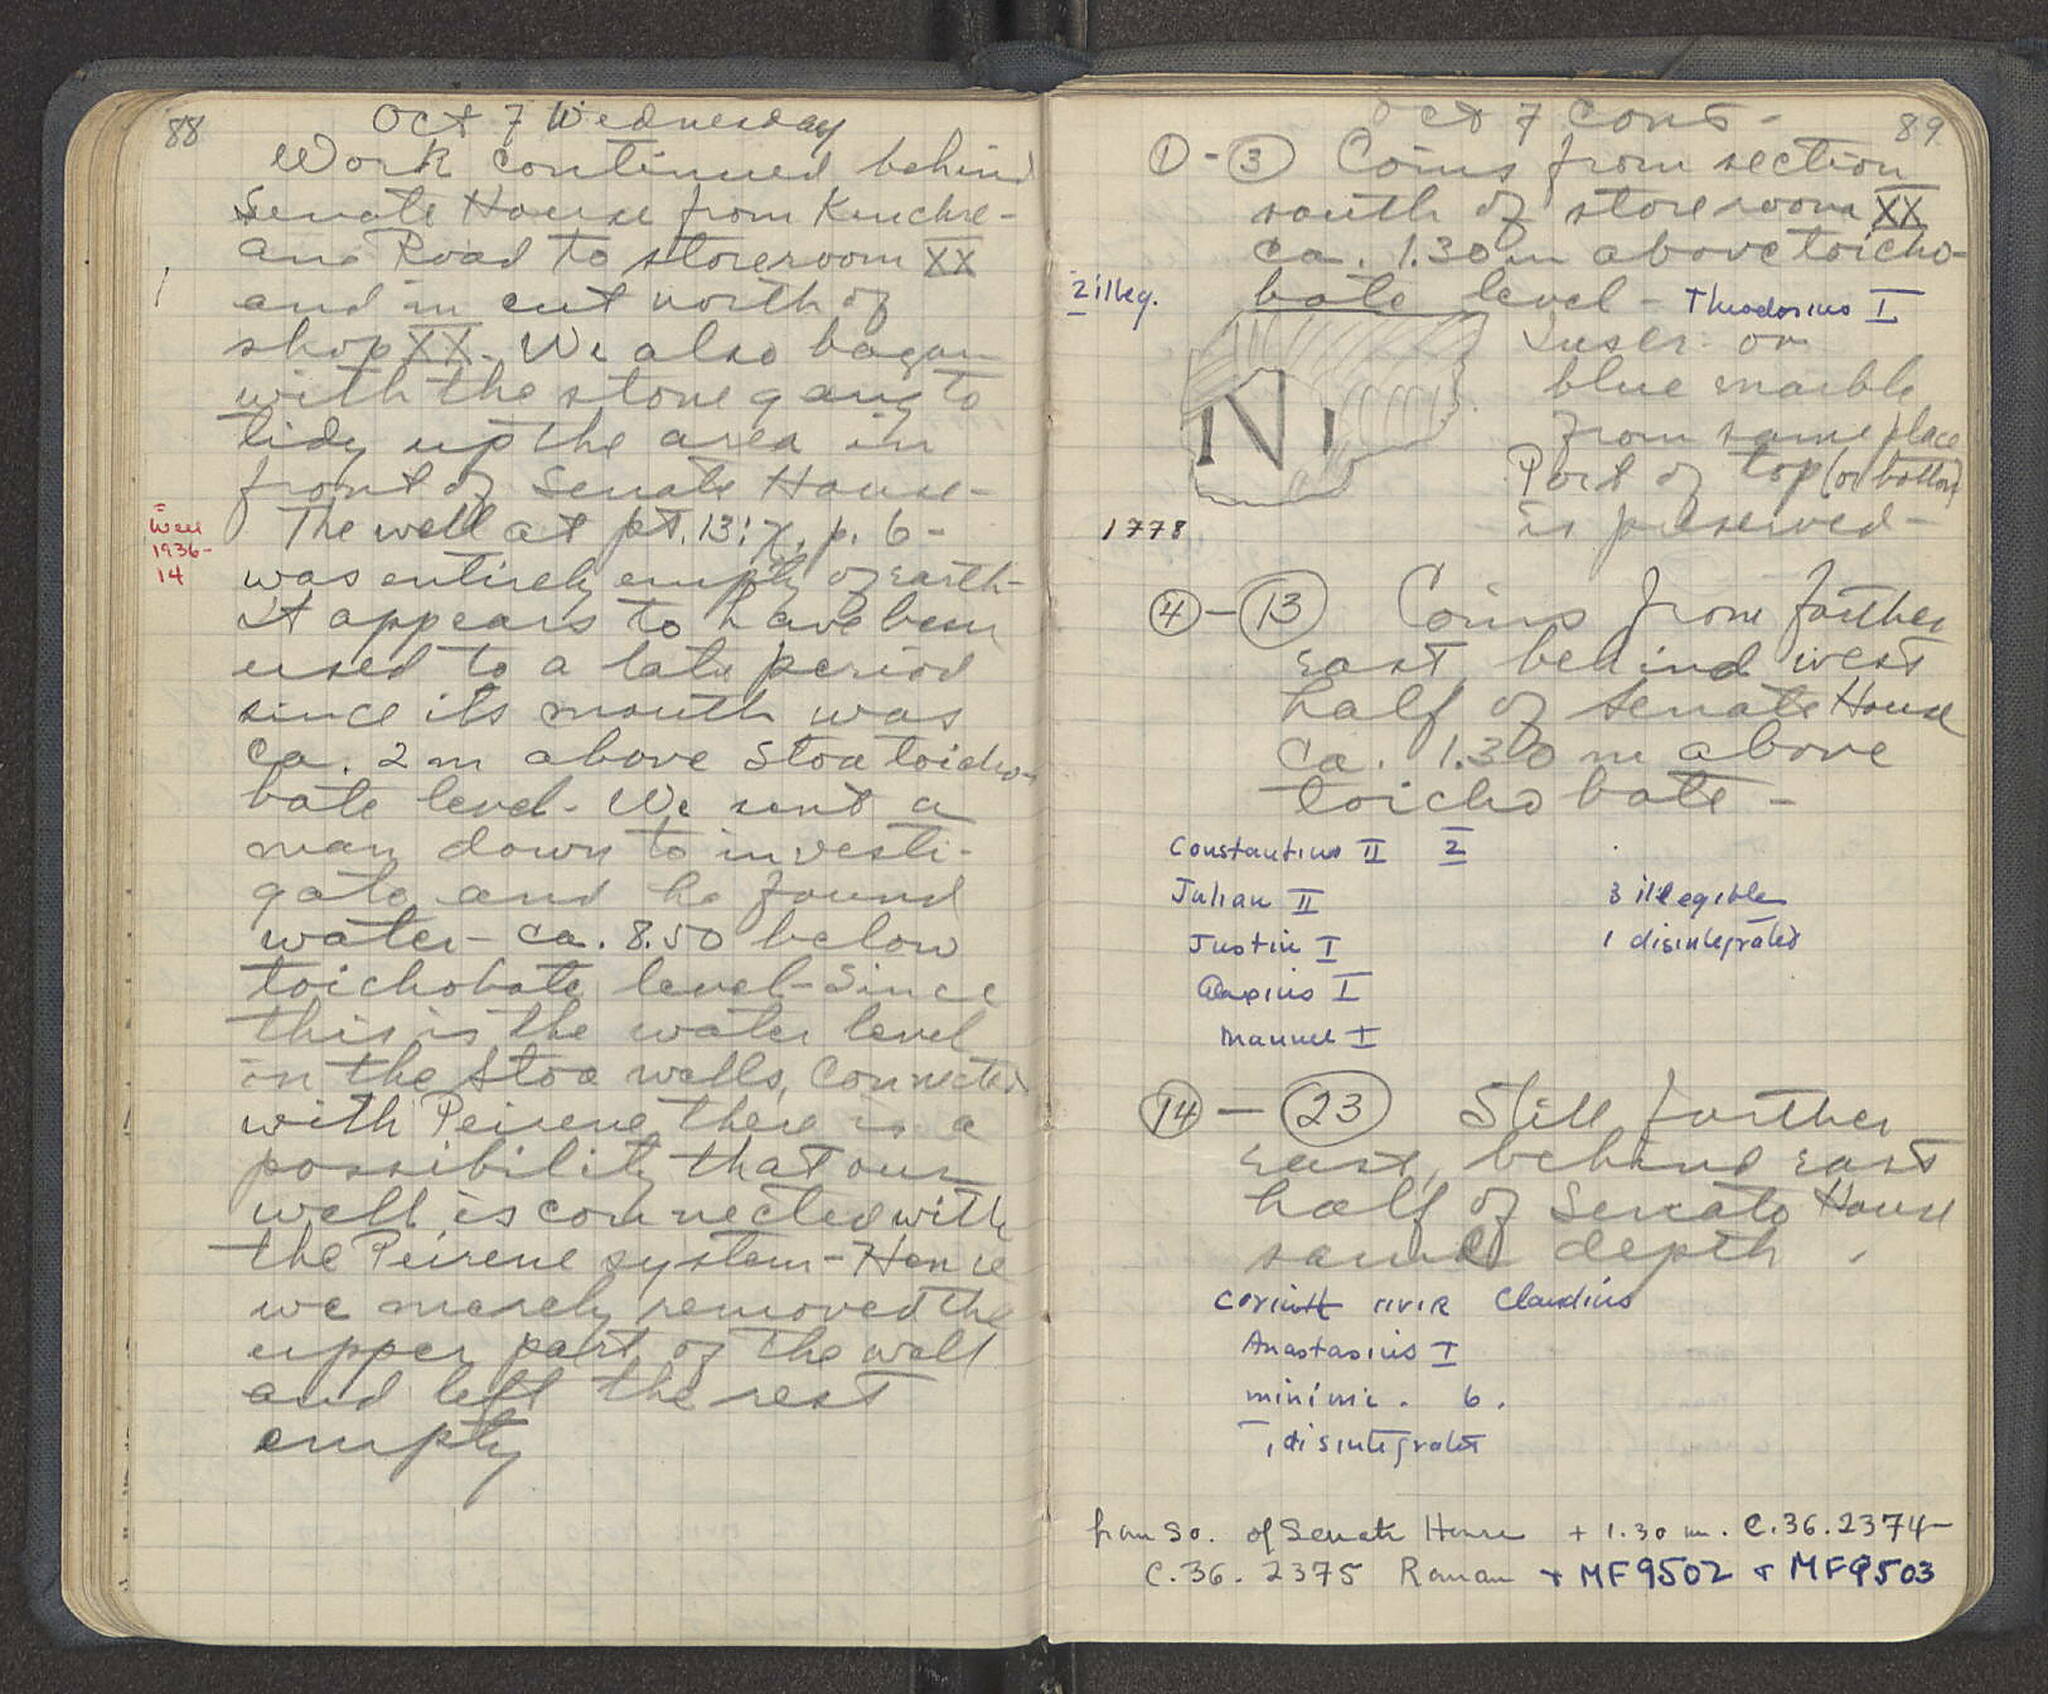 88
Oct 7 Wednesday
Work continued behind
Senate House from Kenchre-
ans Road to storeroom XX
and in cut north of
shop XX. We also began
with the stone gang to
tidy up the area in
front of Senate House-
Well
1936-
14
The well at pt. 13:χ, p. 6-
was entirely empty of earth-
It appears to have been
used to a late period
since its mouth was
ca. 2 m above Stoa toicho-
bate level- We sent a
man down to investi-
gate and he found
water- ca. 8.50 below
toichobate level- Since
this is the water level
in the Stoa wells, connected
with Peirene, there is a
possibility that our
well is connected with
the Peirene system- Hence
we merely removed the
upper part of the well
and left the rest
empty
89
Oct 7 cont-
① - ③ Coins from section
south of storeroom XX
ca. 1.30 m above toicho-
bate level - Theodosius I
2 illeg.
N
Inscr. on
blue marble
from same place
Part of top (or bottom)
is preserved-
1778
④ - ⑬ Coins from farther
east, behind west
half of Senate House
ca. 1.30 m above
toichobate -
Constantius II 2
Julian II 3 illegible
Justin I 1 disintegrated
Alexius I
Manuel I
⑭ - ㉓ Still farther
east, behind east
half of Senate House
same depth.
Corinth IIVIR Claudius
Anastasius I
minimi. 6.
1 disintegrated
from So. of Senate House + 1.30 m. C.36.2374-
C.36.2375 Roman + MF9502 + MF9503